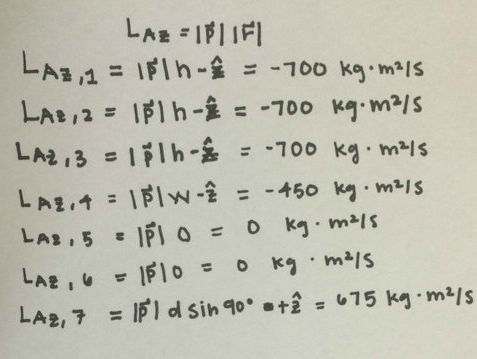 LAz = |p⃗| |r⃗|
LAz,1 = |p⃗| h -ẑ = -700 kg·m²/s
LAz,2 = |p⃗| h -ẑ = -700 kg·m²/s
LAz,3 = |p⃗| h -ẑ = -700 kg·m²/s
LAz,4 = |p⃗| w -ẑ = -450 kg·m²/s
LAz,5 = |p⃗| 0 = 0 kg·m²/s
LAz,6 = |p⃗| 0 = 0 kg·m²/s
LAz,7 = |p⃗| d sin 90° +ẑ = 675 kg·m²/s